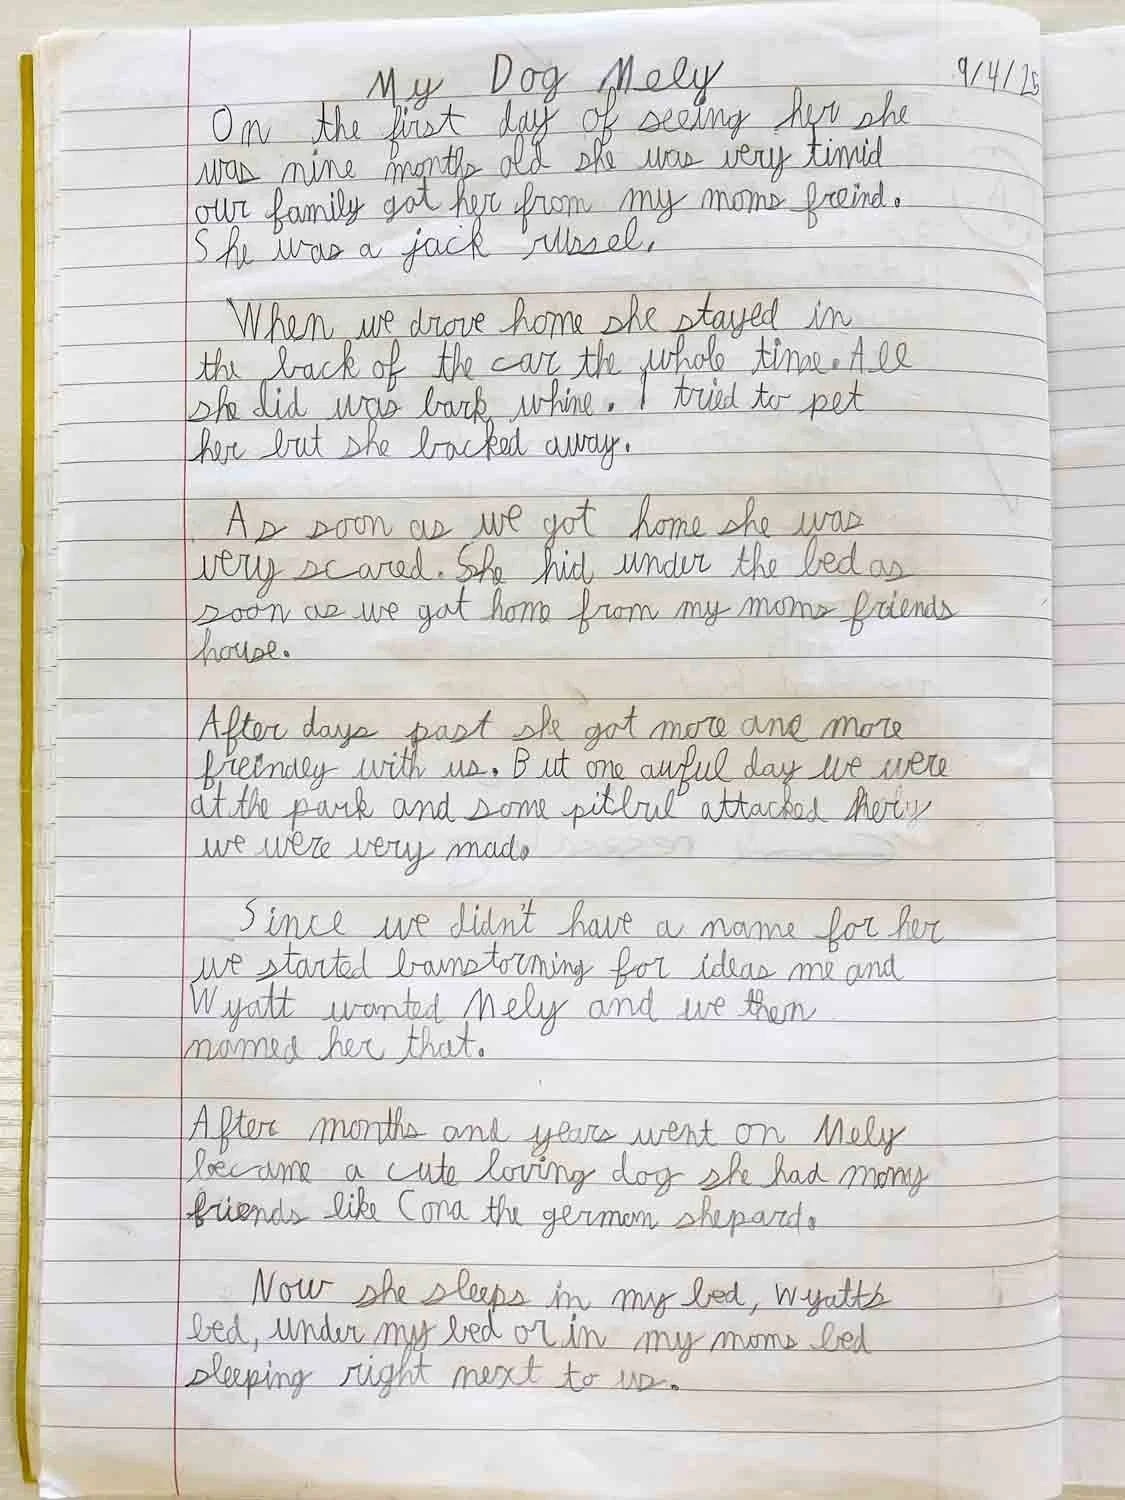 My Dog Mely
9/4/25
On the first day of seeing her she
was nine months old she was very timid
our family got her from my moms freind.
She was a jack russel.
When we drove home she stayed in
the back of the car the whole time. All
she did was bark, whine. I tried to pet
her but she backed away.
As soon as we got home she was
very scared. She hid under the bed as
soon as we got home from my moms friends
house.
After days past she got more and more
freindly with us. But one awful day we were
at the park and some pitbul attacked her
we were very mad.
Since we didn't have a name for her
we started bainstorming for ideas me and
Wyatt wanted Mely and we then
named her that.
After months and years went on Mely
became a cute loving dog she had many
friends like Cona the german shepard.
Now she sleeps in my bed, Wyatts
bed, under my bed or in my moms bed
sleeping right next to us.